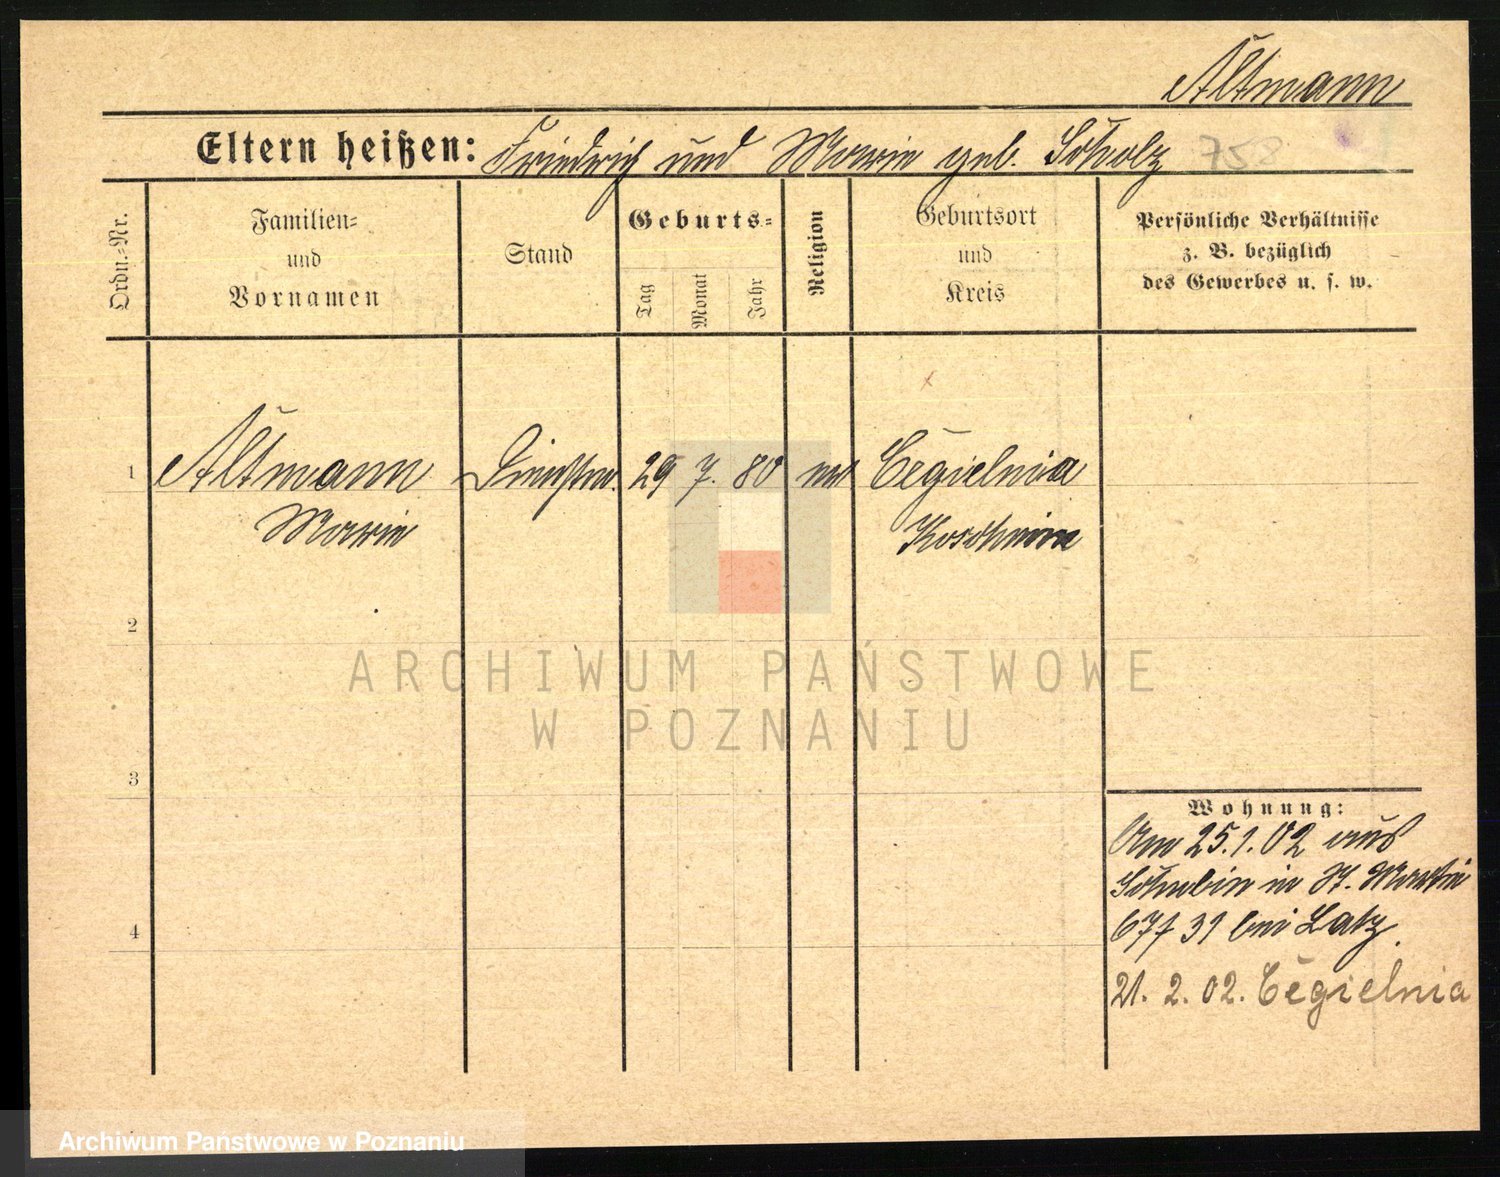 Altmann
Eltern heißen: Friedrich und Marie geb. Scholz 758
Ordn.-Nr.
Familien-
und
Vornamen
Stand
Geburts-
Tag
Monat
Jahr
Religion
Geburtsort
und
Kreis
Persönliche Verhältnisse
z. B. bezüglich
des Gewerbes u. s. w.
1 Altmann Dienstm. 29 7. 80 ev Cegielnia
Marie Koschmin
2
3
4
ARCHIWUM PAŃSTWOWE
W POZNANIU
Wohnung:
Am 25.1.02 aus
Schubin in St. Martin
67 31 bei Latz.
21. 2. 02. Cegielnia
Archiwum Państwowe w Poznaniu